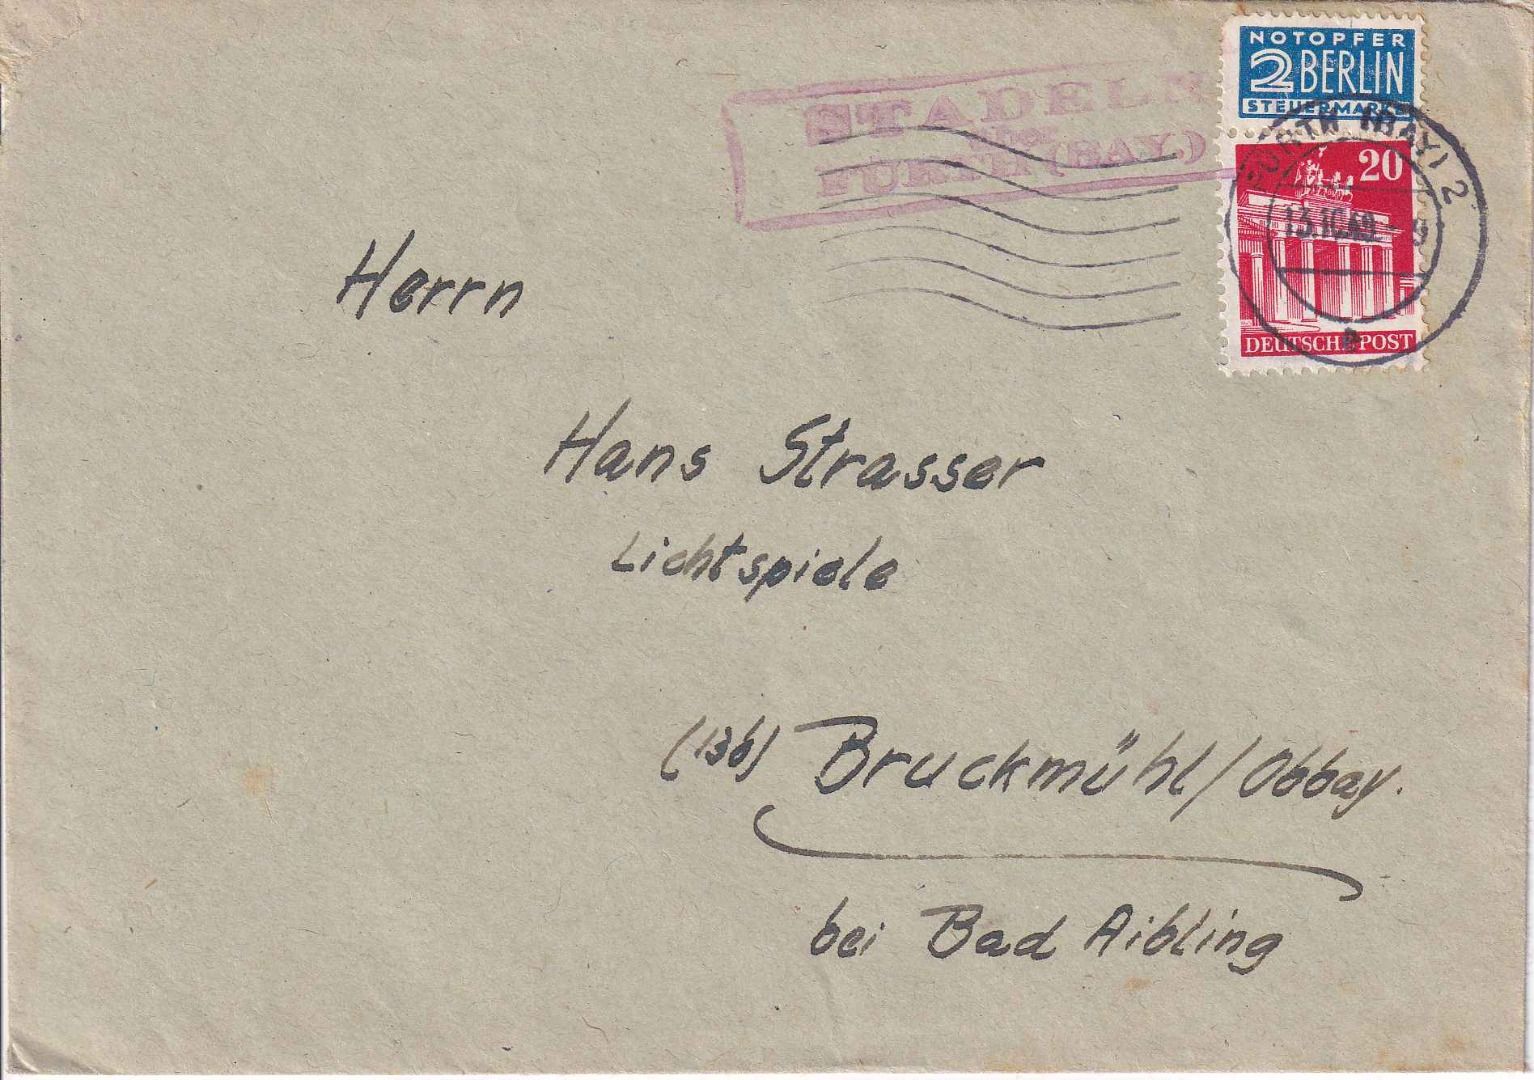 NOTOPFER
2 BERLIN
STEUERMARKE
STADELN
über
FÜRTH (BAY.)
FÜRTH (BAY) 2
20
13.10.49
DEUTSCHE POST
Herrn
Hans Strasser
Lichtspiele
(13b) Bruckmühl/Obbay.
bei Bad Aibling